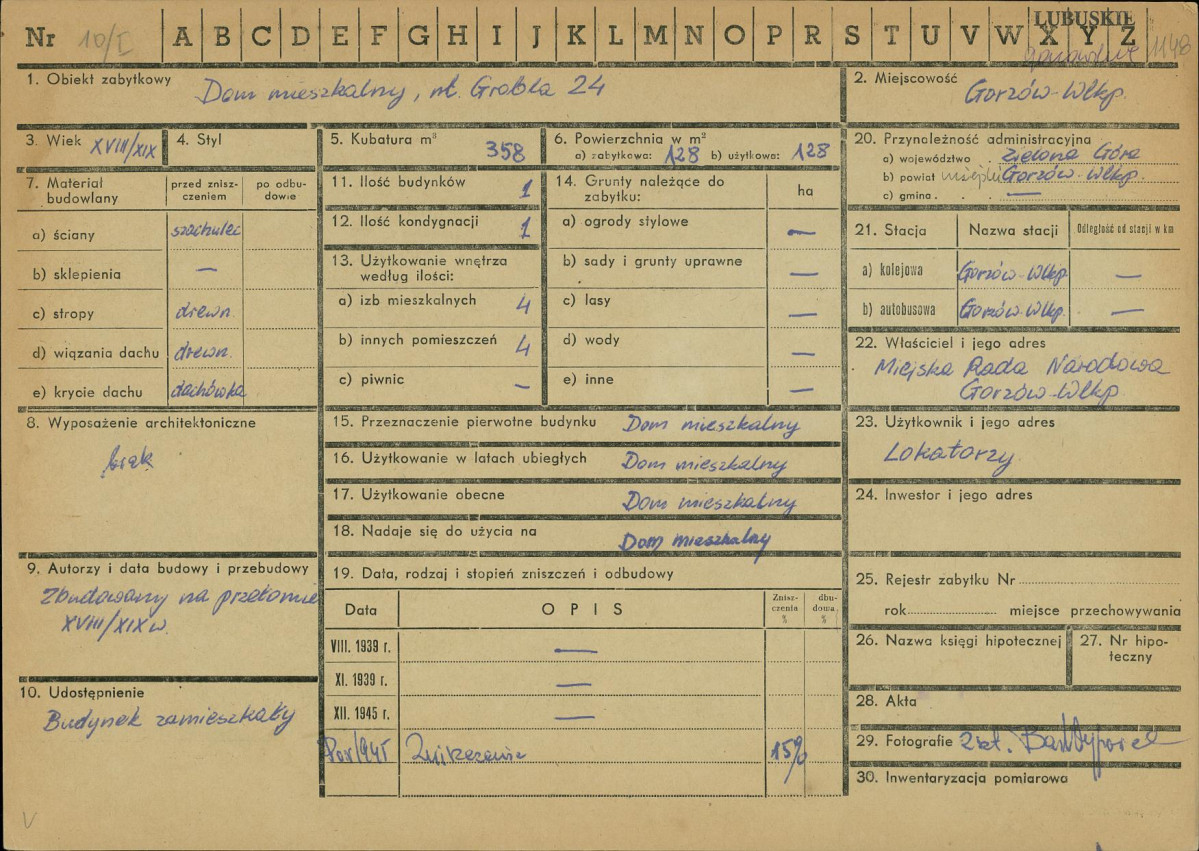 LUBUSKIE
Nr 10/I A B C D E F G H I J K L M N O P R S T U V W X Y Z
1148
1. Obiekt zabytkowy Dom mieszkalny, ul. Grobla 24
2. Miejscowość Gorzów-Wlkp.
3. Wiek XVIII/XIX
4. Styl
5. Kubatura m³ 358
6. Powierzchnia w m²
a) zabytkowa: 128 b) użytkowa: 128
7. Materiał budowlany
przed zniszczeniem
po odbudowie
a) ściany szachulec
b) sklepienia —
c) stropy drewn.
d) wiązania dachu drewn.
e) krycie dachu dachówka
8. Wyposażenie architektoniczne
brak
9. Autorzy i data budowy i przebudowy
Zbudowany na przełomie
XVIII/XIX w.
10. Udostępnienie
Budynek zamieszkały
11. Ilość budynków 1
12. Ilość kondygnacji 1
13. Użytkowanie wnętrza
według ilości:
a) izb mieszkalnych 4
b) innych pomieszczeń 4
c) piwnic —
14. Grunty należące do
zabytku:
ha
a) ogrody stylowe —
b) sady i grunty uprawne —
c) lasy —
d) wody —
e) inne —
15. Przeznaczenie pierwotne budynku Dom mieszkalny
16. Użytkowanie w latach ubiegłych Dom mieszkalny
17. Użytkowanie obecne Dom mieszkalny
18. Nadaje się do użycia na Dom mieszkalny
19. Data, rodzaj i stopień zniszczeń i odbudowy
Data OPIS Zniszczenia % dbudowa %
VIII. 1939 r. —
XI. 1939 r. —
XII. 1945 r. —
15%
20. Przynależność administracyjna
a) województwo Zielona Góra
b) powiat Gorzów-Wlkp.
c) gmina —
21. Stacja Nazwa stacji Odległość od stacji w km
a) kolejowa Gorzów-Wlkp. —
b) autobusowa Gorzów-Wlkp. —
22. Właściciel i jego adres
Miejska Rada Narodowa
Gorzów-Wlkp.
23. Użytkownik i jego adres
Lokatorzy
24. Inwestor i jego adres
25. Rejestr zabytku Nr
rok miejsce przechowywania
26. Nazwa księgi hipotecznej
27. Nr hipoteczny
28. Akta
29. Fotografie 2 szt.
30. Inwentaryzacja pomiarowa
V